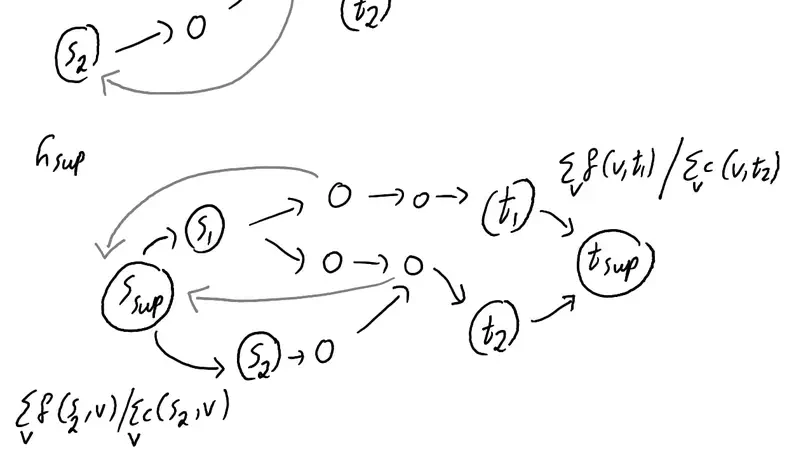 t₂
s₂
hsup
∑ᵥ f(v,t₁) / ∑ᵥ c(v,t₂)
s₁
t₁
tsup
ssup
t₂
s₂
∑ᵥ f(s₂,v) / ∑ᵥ c(s₂,v)